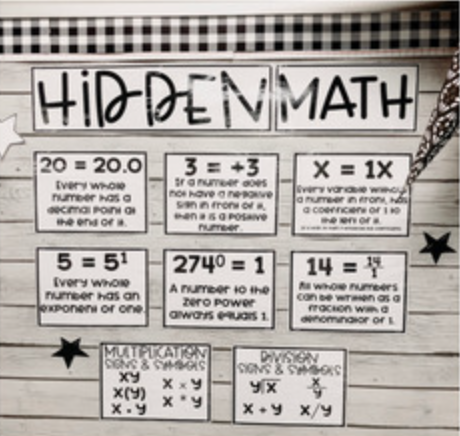 HiDDEN MATH
20 = 20.0
Every whole
number has a
decimal point at
the end of it.
3 = +3
If a number does
not have a negative
sign in front of it,
then it is a positive
number.
X = 1X
Every variable without
a number in front, has
a coefficient of 1 to
the left of it.
5 = 5¹
Every whole
number has an
exponent of one.
274⁰ = 1
A number to the
zero power
always equals 1.
14 = 14/1
All whole numbers
can be written as a
fraction with a
denominator of 1.
MULTIPLICATION
SIGNS & SYMBOLS
XY
X × Y
X(Y)
X * Y
X • Y
DIVISION
SIGNS & SYMBOLS
Y⟌X
X/Y
X ÷ Y
X/Y